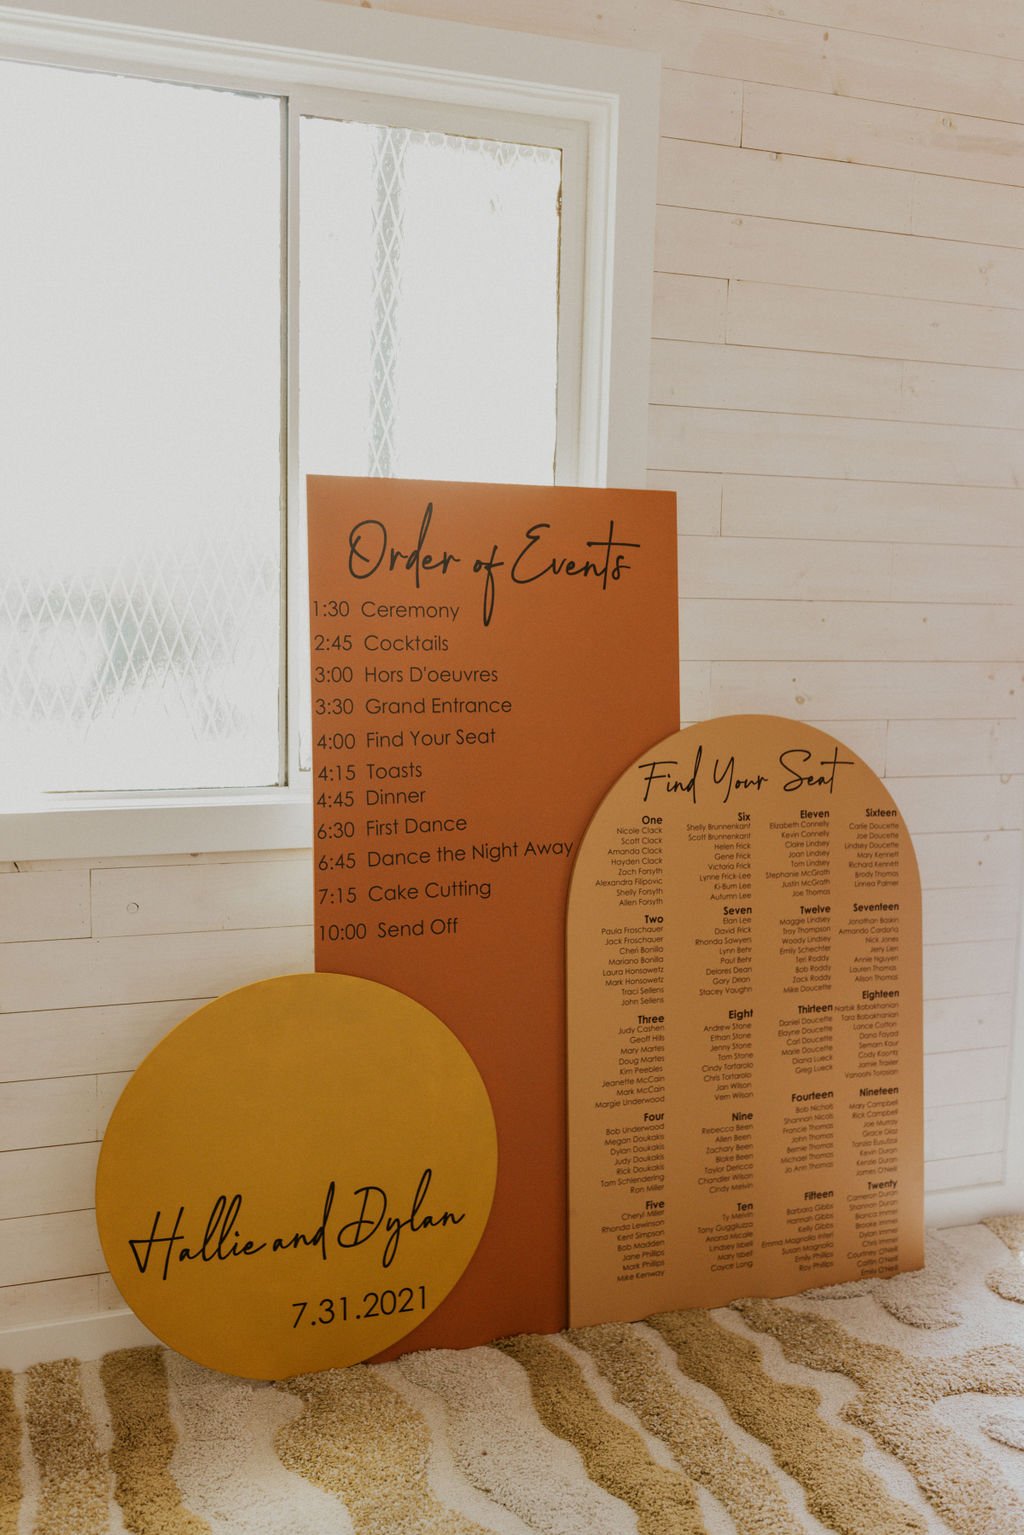 Order of Events
1:30 Ceremony
2:45 Cocktails
3:00 Hors D'oeuvres
3:30 Grand Entrance
4:00 Find Your Seat
4:15 Toasts
4:45 Dinner
6:30 First Dance
6:45 Dance the Night Away
7:15 Cake Cutting
10:00 Send Off
Hallie and Dylan
7.31.2021
Find Your Seat
One
Nicole Clack
Scott Clack
Amanda Clack
Hayden Clack
Zach Forsyth
Alexandra Filipovic
Shelly Forsyth
Allen Forsyth
Two
Paula Froschauer
Jack Froschauer
Cheri Bonilla
Mariano Bonilla
Laura Honsowetz
Mark Honsowetz
Traci Sellens
John Sellens
Three
Judy Cashen
Geoff Hills
Mary Martes
Doug Martes
Kim Peebles
Jeanette McCain
Mark McCain
Margie Underwood
Four
Bob Underwood
Megan Doukakis
Dylan Doukakis
Judy Doukakis
Rick Doukakis
Tom Schlendering
Ron Miller
Five
Cheryl Miller
Rhonda Lewinson
Kent Simpson
Bob Madden
Jane Phillips
Mark Phillips
Mike Kenway
Six
Shelly Brunnenkant
Scott Brunnenkant
Helen Frick
Gene Frick
Victoria Frick
Lynne Frick-Lee
Ki-Bum Lee
Autumn Lee
Seven
Elan Lee
David Frick
Rhonda Sawyers
Lynn Behr
Paul Behr
Delores Dean
Gary Dean
Stacey Vaughn
Eight
Andrew Stone
Ethan Stone
Jenny Stone
Tom Stone
Cindy Tortarolo
Chris Tortarolo
Jan Wilson
Vern Wilson
Nine
Rebecca Been
Allen Been
Zachary Been
Blake Been
Taylor Dericco
Chandler Wilson
Cindy Melvin
Ten
Ty Melvin
Tony Guggliuzza
Ariana Micale
Lindsey Isbell
Mary Isbell
Cayce Long
Eleven
Elizabeth Connelly
Kevin Connelly
Claire Lindsey
Joan Lindsey
Tom Lindsey
Stephanie McGrath
Justin McGrath
Joe Thomas
Twelve
Maggie Lindsey
Troy Thompson
Woody Lindsey
Emily Schechter
Teri Roddy
Bob Roddy
Zack Roddy
Mike Doucette
Thirteen
Daniel Doucette
Elayne Doucette
Carl Doucette
Marie Doucette
Diana Lueck
Greg Lueck
Fourteen
Bob Nichols
Shannon Nicols
Francie Thomas
John Thomas
Bernie Thomas
Michael Thomas
Jo Ann Thomas
Fifteen
Barbara Gibbs
Hannah Gibbs
Kelly Gibbs
Emma Magnolia Interi
Susan Magnolia
Emily Phillips
Roy Phillips
Sixteen
Carlie Doucette
Joe Doucette
Lindsey Doucette
Mary Kennett
Richard Kennett
Brody Thomas
Linnea Palmer
Seventeen
Jonathan Baskin
Armando Cardona
Nick Jones
Jerry Lien
Annie Nguyen
Lauren Thomas
Alison Thomas
Eighteen
Narbik Babakhanian
Tara Babakhanian
Lance Cotton
Dana Fayad
Semarn Kaur
Cody Koontz
Jamie Traxler
Vanoohi Torosian
Nineteen
Mary Campbell
Rick Campbell
Joe Murray
Grace Diaz
Kevin Duran
Kenzie Duran
James O'Neil
Twenty
Cameron Duran
Shannon Duran
Bianca Immer
Brooke Immer
Dylan Immer
Chris Immer
Courtney O'Neil
Caitlin O'Neil
Emily O'Neil